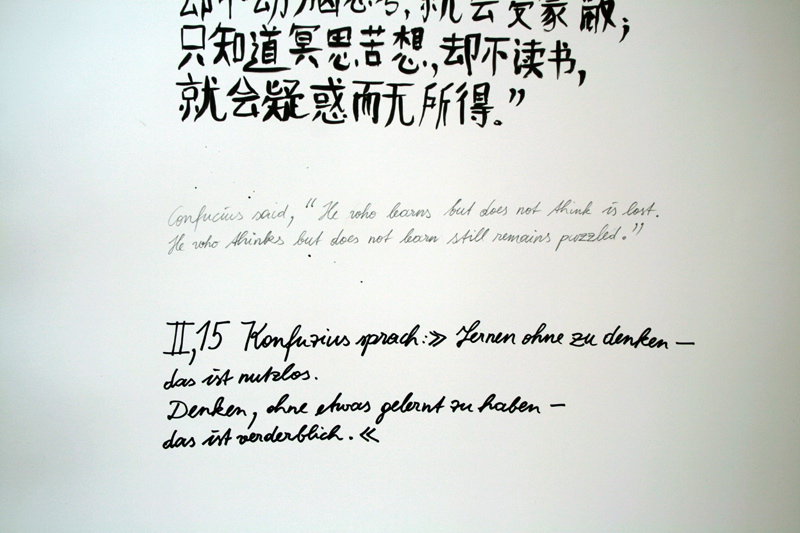 却不动脑思考,就会受蒙蔽;
只知道冥思苦想,却不读书,
就会疑惑而无所得。”
Confucius said, “He who learns but does not think is lost.
He who thinks but does not learn still remains puzzled.”
II,15 Konfuzius sprach:» Lernen ohne zu denken –
das ist nutzlos.
Denken, ohne etwas gelernt zu haben –
das ist verderblich.«